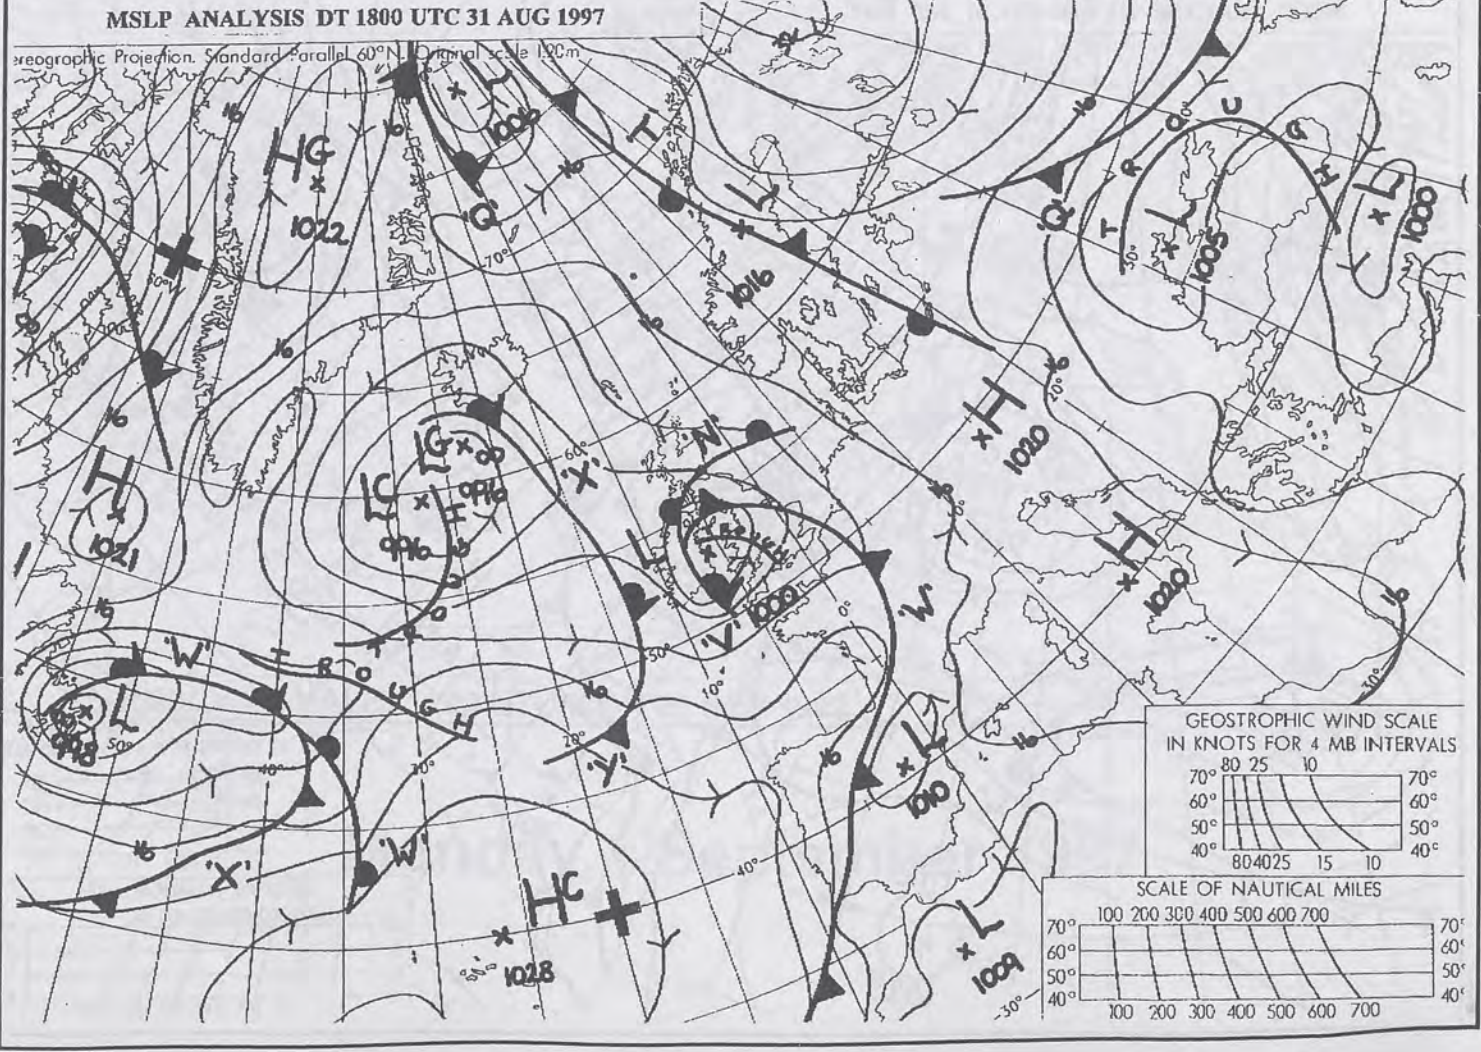 MSLP ANALYSIS DT 1800 UTC 31 AUG 1997
ereographic Projection. Standard Parallel 60°N. Original scale 1:20m
16
HG
1022
16
L
1006
'Q'
16
T
L
1016
16
'Q'
TROUGH
L
1005
L
1000
16
16
70°
H
1020
16
16
H
1021
LG
996
LC
996
TROUGH
60°
'X'
'N'
L
1000
'V'
'W'
16
H
1020
16
'W'
TROUGH
L
998
50°
40°
30°
20°
16
'Y'
50°
10°
0°
16
L
1010
16
30°
'X'
16
'W'
HC
1028
40°
L
1009
30°
GEOSTROPHIC WIND SCALE
IN KNOTS FOR 4 MB INTERVALS
80 25 10
70° 70°
60° 60°
50° 50°
40° 40°
80 40 25 15 10
SCALE OF NAUTICAL MILES
100 200 300 400 500 600 700
70° 70°
60° 60°
50° 50°
40° 40°
100 200 300 400 500 600 700